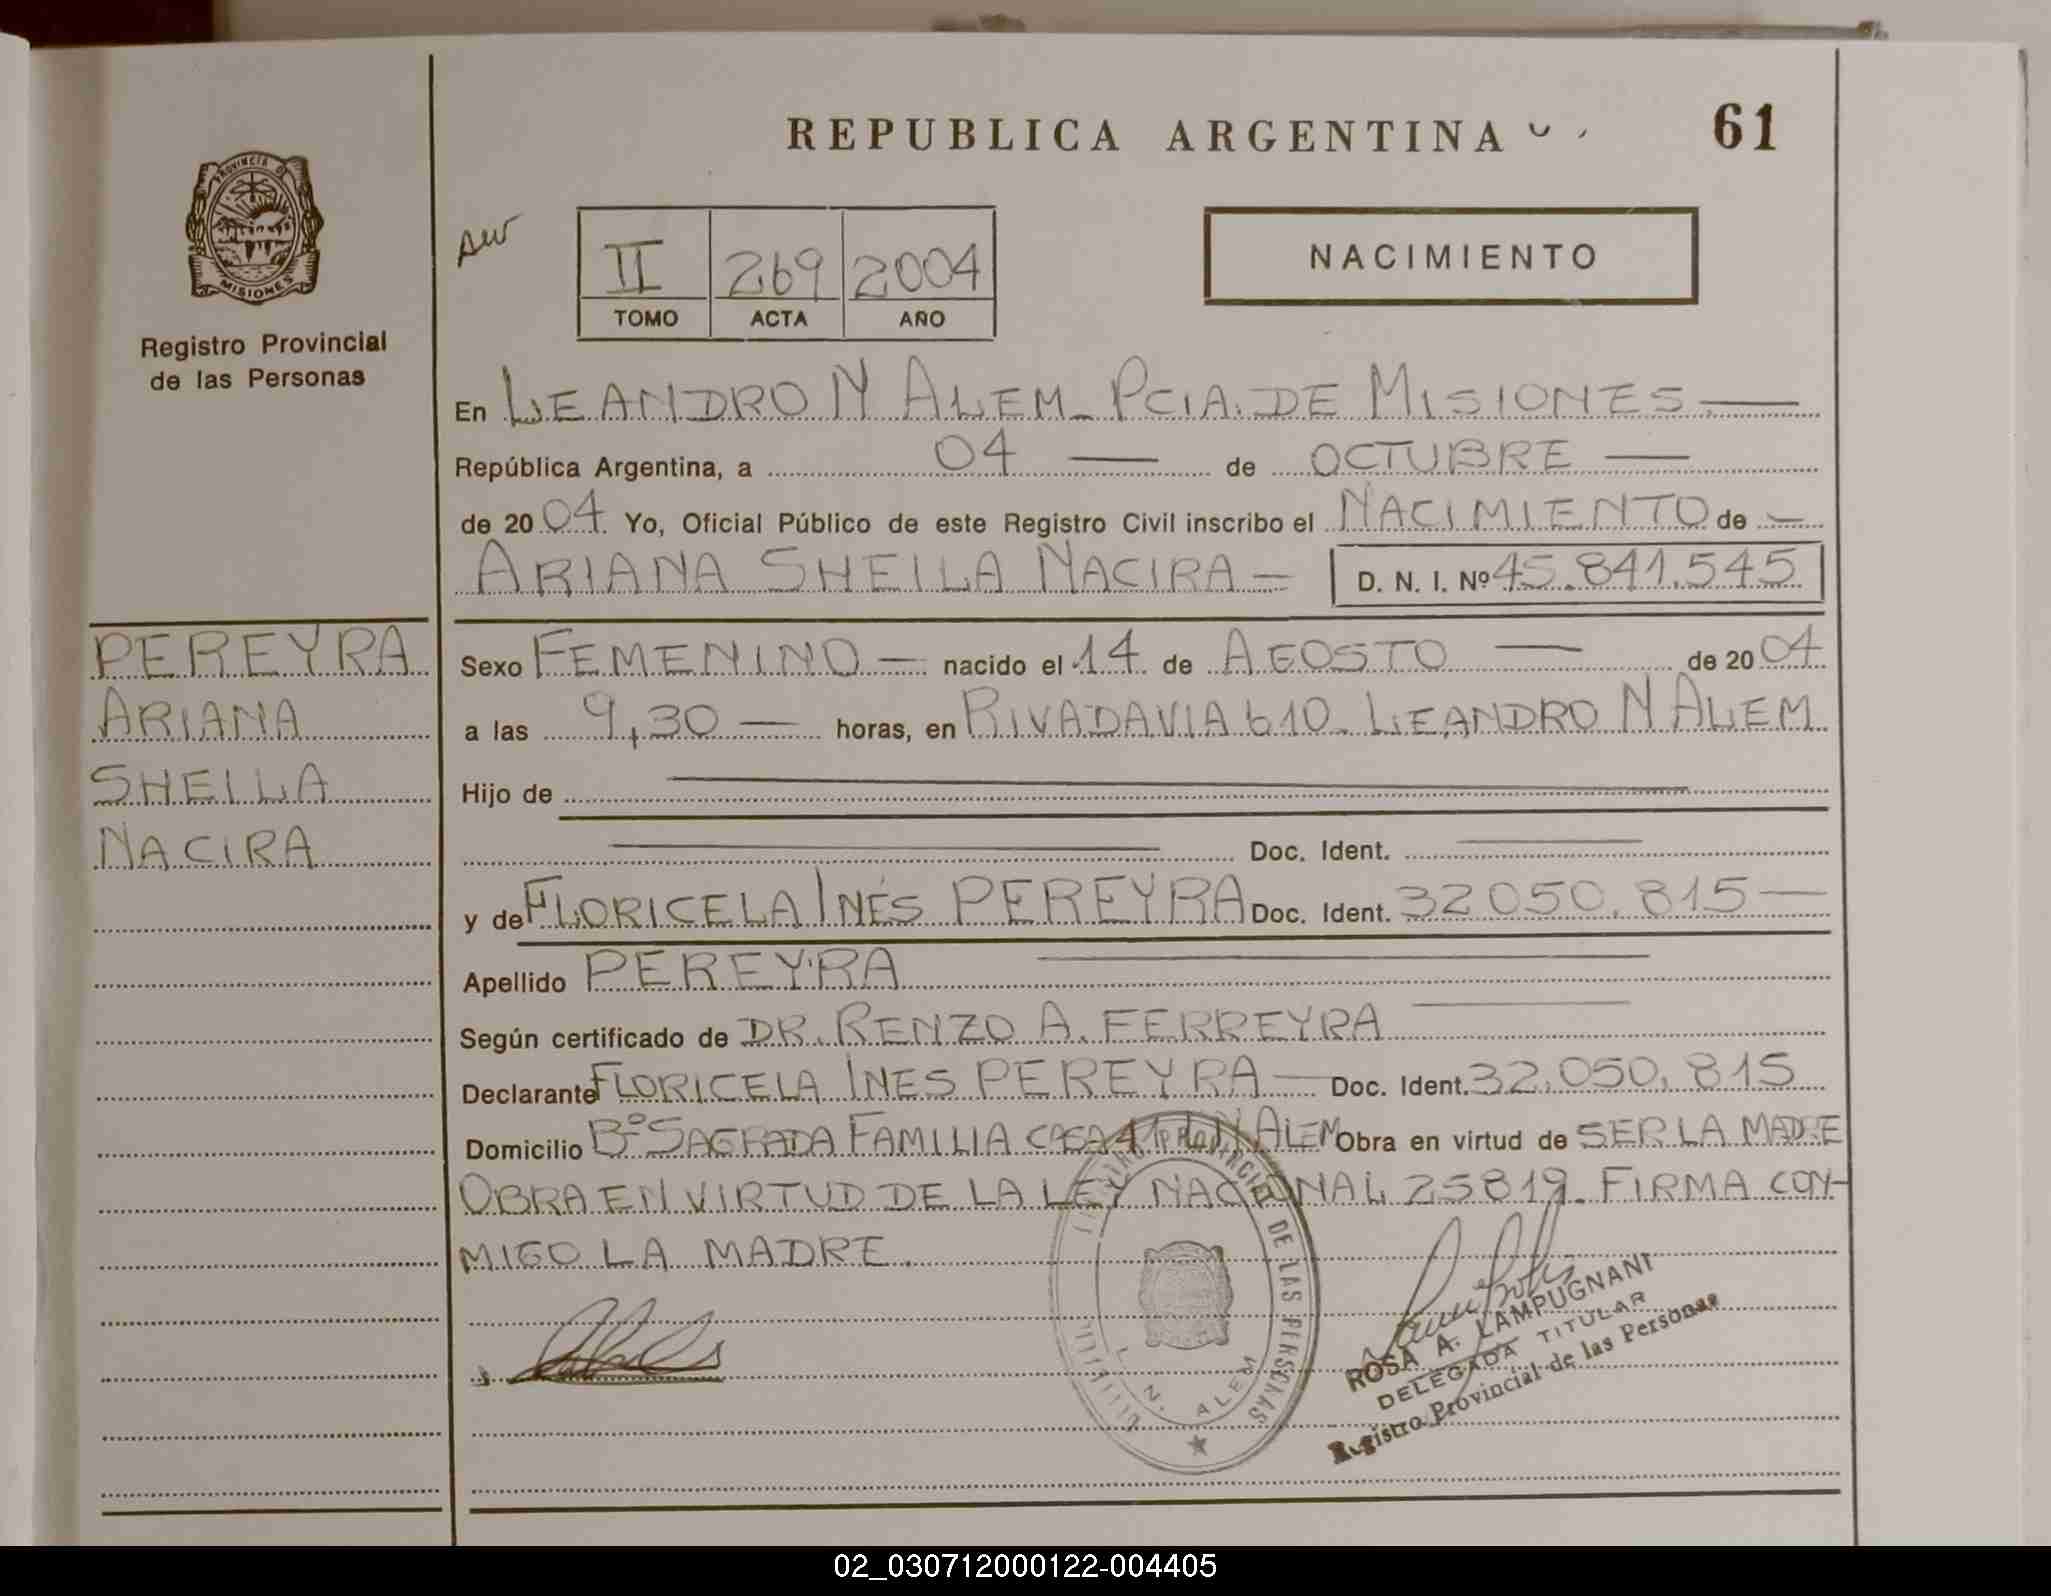 REPUBLICA ARGENTINA
61
PROVINCIA DE
MISIONES
Registro Provincial
de las Personas
II 269 2004
TOMO ACTA AÑO
NACIMIENTO
En LEANDRO N ALEM - PCIA. DE MISIONES —
República Argentina, a 04 — de OCTUBRE —
de 2004 Yo, Oficial Público de este Registro Civil inscribo el NACIMIENTO de —
ARIANA SHEILA NACIRA — D. N. I. Nº 45.841.545
PEREYRA
ARIANA
SHEILA
NACIRA
Sexo FEMENINO — nacido el 14 de AGOSTO — de 2004
a las 9,30 — horas, en RIVADAVIA 610. LEANDRO N ALEM
Hijo de
Doc. Ident.
y de FLORICELA INÉS PEREYRA Doc. Ident. 32050.815 —
Apellido PEREYRA
Según certificado de DR. RENZO A. FERREYRA
Declarante FLORICELA INES PEREYRA — Doc. Ident. 32.050.815
Domicilio Bº SAGRADA FAMILIA CASA 41 L N ALEM Obra en virtud de SER LA MADRE
OBRA EN VIRTUD DE LA LEY NACIONAL 25819. FIRMA CON-
MIGO LA MADRE.
PROVINCIAL DE LAS PERSONAS
L. N. ALEM
ROSA A. LAMPUGNANI
DELEGADA TITULAR
Registro Provincial de las Personas
02_030712000122-004405